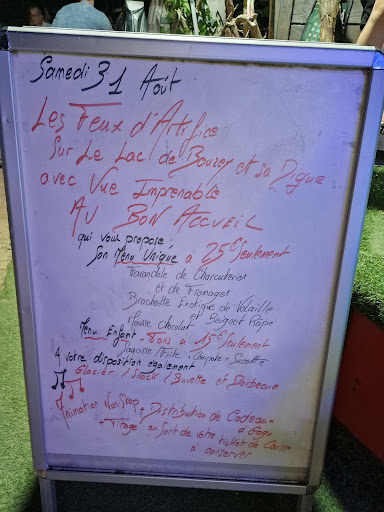 Samedi 31 Août
Les Feux d'Artifice
Sur Le Lac de Bouzey et sa Digue
avec Vue Imprenable
AU BON ACCUEIL
qui vous propose,
Son Menu Unique à 25€ Seulement
Farandole de Charcuteries
et de Fromages
Brochette Exotique de Volaille
et Beignet Râpé
Mousse Chocolat
Menu Enfant - 8 ans à 15€ Seulement
Saucisse / Frite - Compote - Sucette
A votre disposition également
Glacier / Snack / Buvette et Barbecue
Animation Non Stop + Distribution de Cadeaux
à Gogo
+ Tirage au Sort de votre ticket de Caisse
à conserver